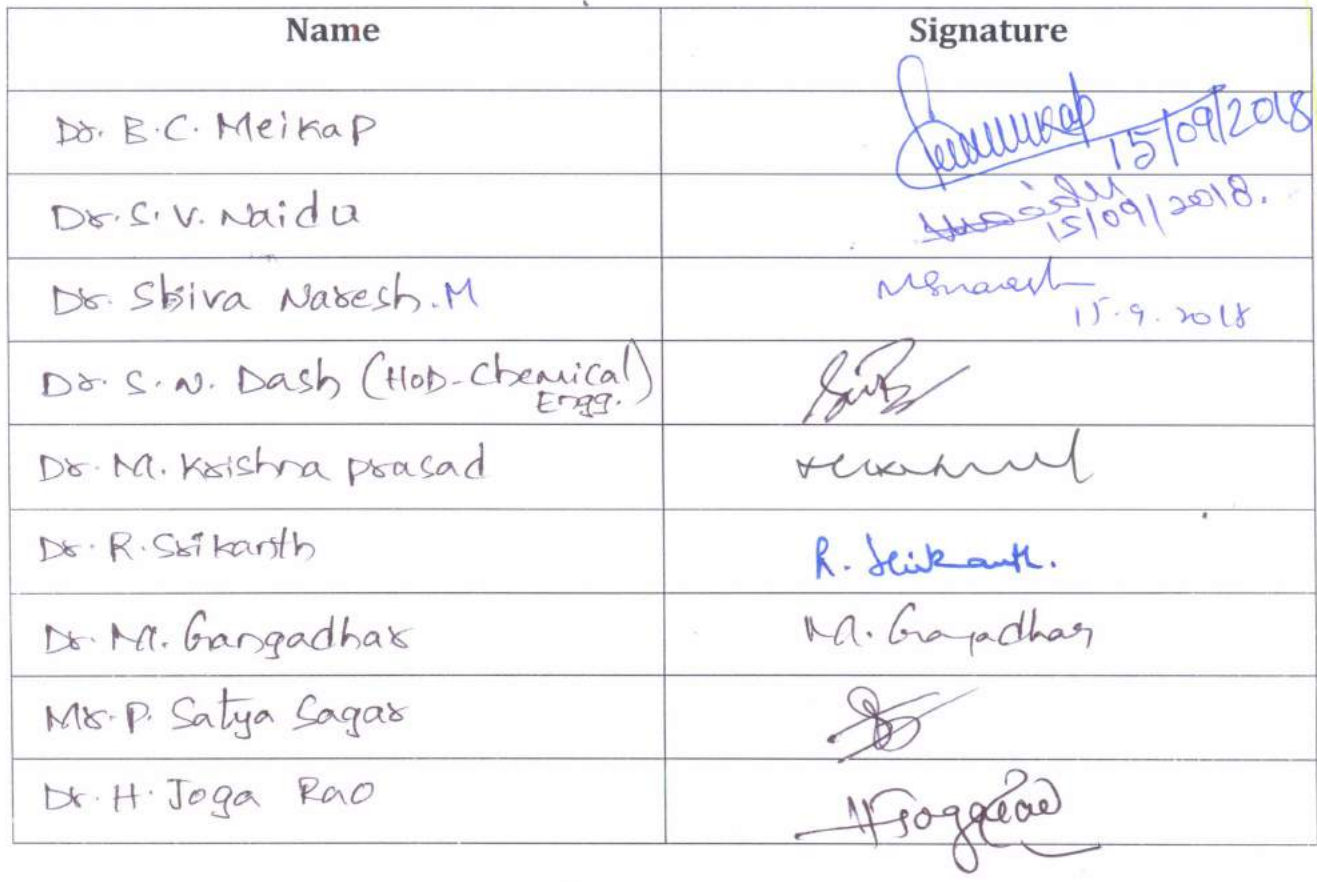 Name Signature
Dr. B.C. Meikap 15/09/2018
Dr. S. V. Naidu 15/09/2018.
Dr. Shiva Naresh.M 15.9.2018
Dr. S. N. Dash (HOD-Chemical Engg.)
Dr. M. Krishna prasad
Dr. R. Srikanth R. Srikanth.
Dr. M. Gangadhar M. Gangadhar
Mr. P. Satya Sagar
Dr. H. Joga Rao HJogarao